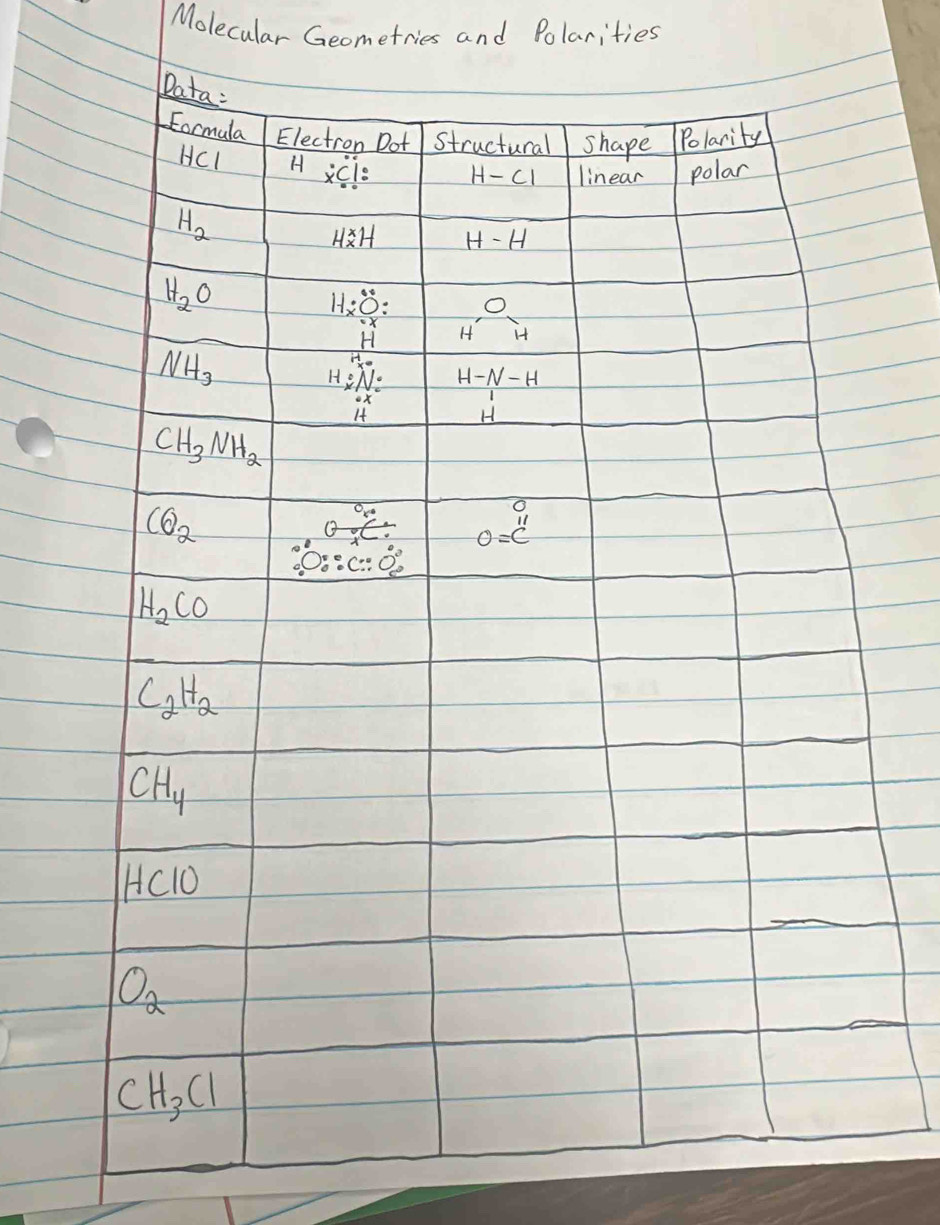 Molecular Geometries and Polarities
Data:
Formula Electron Dot Structural Shape Polarity
HCl H ẋCl: H-Cl linear polar
H₂ HẍH H-H
H₂O H:Ö: O
H H H
NH₃ H
H:N: H-N-H
H H
CH₃NH₂
CO₂ O O
O C: O=C
:O::C::O:
H₂CO
C₂H₂
CH₄
HClO
O₂
CH₃Cl